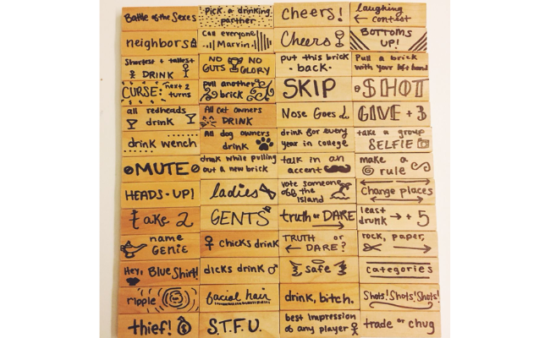 Battle of the Sexes
Pick a drinking
partner
Cheers!
laughing
contest
neighbors
Call everyone
Marvin
Cheers
BOTTOMS
UP!
Shortest & tallest
DRINK
NO NO
GUTS GLORY
put this brick
- back -
Pull a brick
with your left hand
CURSE: next 3
turns
pull another
brick
SKIP
$HOT
all redheads
drink
All cat owners
DRINK
Nose Goes
GIVE + 3
drink wench
All dog owners
drink
drink for every
year in college
take a group
SELFIE
MUTE
drink while pulling
out a new brick
talk in an
accent
make a
rule
HEADS-UP!
ladies
vote someone
off the
island
Change places
take 2
GENTS
truth or DARE
least
drunk → + 5
name
GENIE
chicks drink
TRUTH or
DARE?
rock, paper,
Hey, Blue Shirt!
dicks drink
Safe
categories
ripple
facial hair
drink, bitch.
Shots! Shots! Shots!
thief!
S.T.F.U.
best impression
of any player
trade or chug